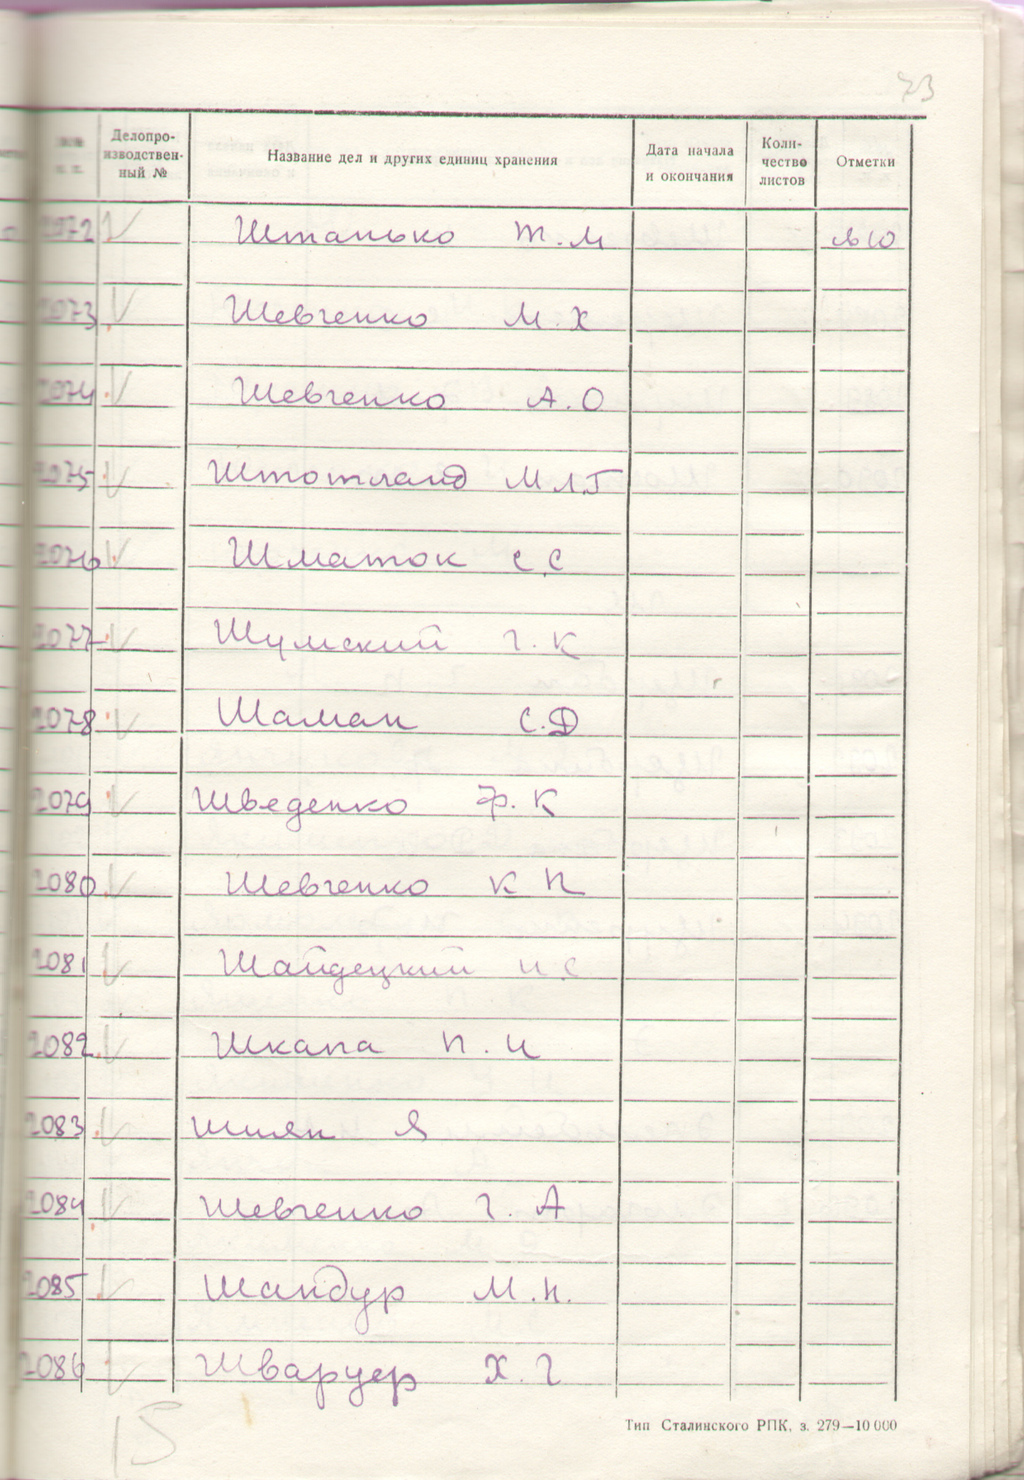 73
Делопро-
изводствен-
ный №
Название дел и других единиц хранения
Дата начала
и окончания
Коли-
чество
листов
Отметки
2072 Штанько Т. М
2073 Шевченко М. Х
2074 Шевченко А. О
2075 Штотланд М.Г
2076 Шматок С С
2077 Шумский Г. К
2078 Шаман С. Д
2079 Шведенко Ф. К
2080 Шевченко К П
2081 Шайдецкий И С
2082 Шкапа П. И
2083 Шиян Я
2084 Шевченко Г. А
2085 Шандур М. Н.
2086 Шварцер Х. Г
15
Тип Сталинского РПК, з. 279—10 000